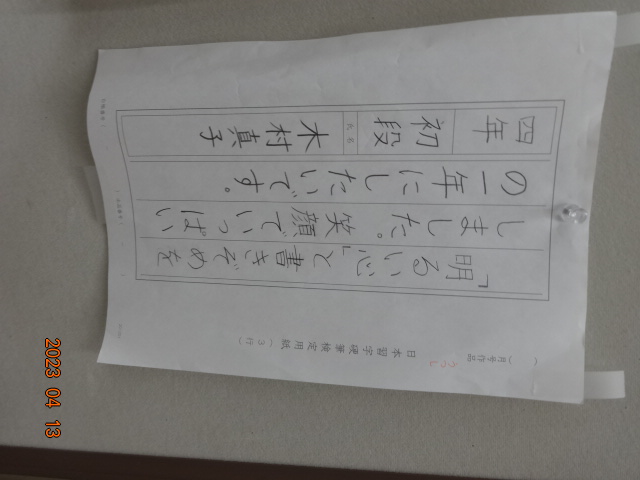 ( )月号作品
日本習字硬筆検定用紙(3行)
「明るい心」と書きぞめを
しました。笑顔でいっぱい
の一年にしたいです。
四年
初段
氏名
木村真子
2023 04 13